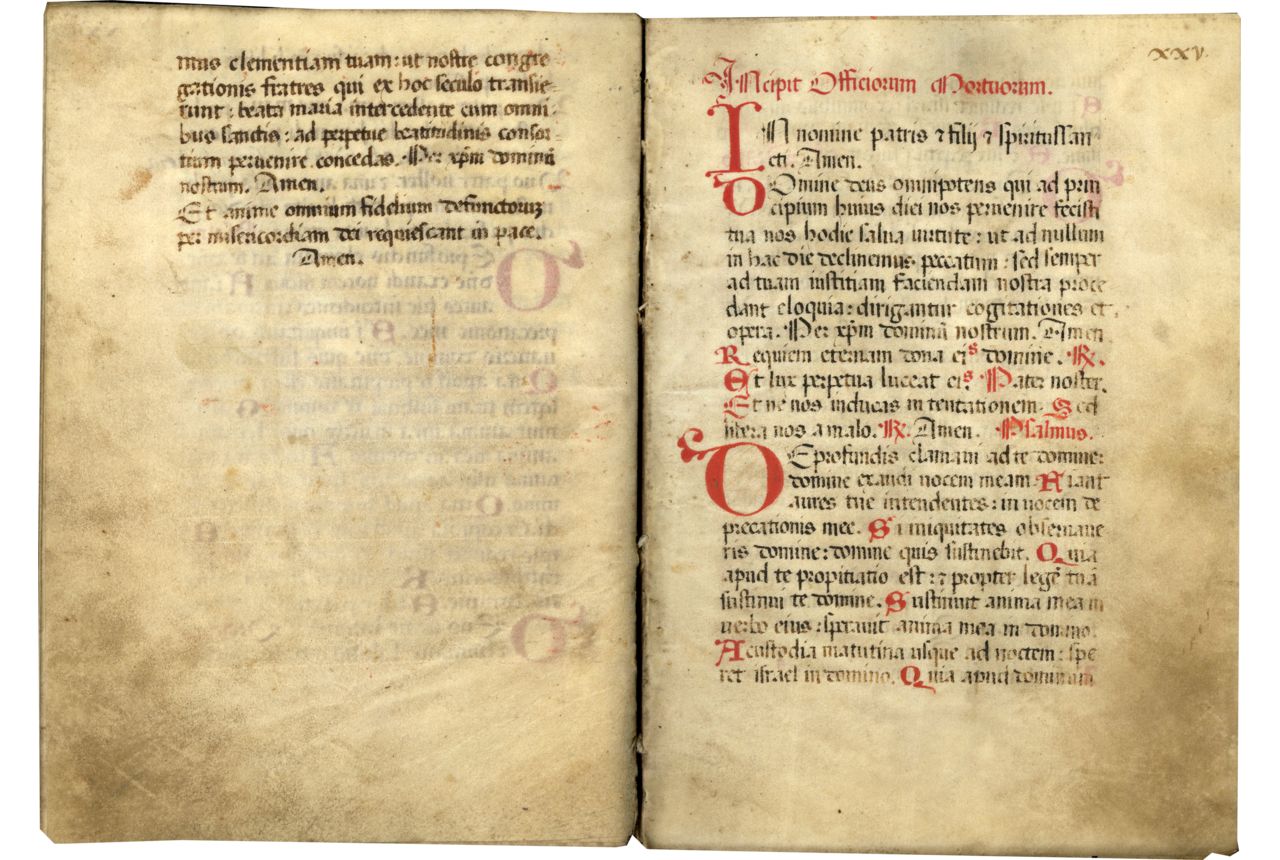 mus clementiam tuam : ut nostre congre
gationis fratres qui ex hoc seculo transie
runt : beata maria intercedente cum omni
bus sanctis : ad perpetue beatitudinis consor
tium pervenire concedas. Per xp̄m dominū
nostrum. Amen.
Et anime omnium fidelium defunctoruꝝ
per misericordiam dei requiescant in pace.
Amen.
xxv
INcipit Officiorum Mortuorum.
IN nomine patris ⁊ filij ⁊ spiritussan
cti. Amen.
DOmine deus omnipotens qui ad prin
cipium huius diei nos pervenire fecisti
tua nos hodie salva virtute : ut ad nullum
in hac die declinemus peccatum : sed semper
ad tuam iustitiam faciendam nostra proce
dant eloquia : dirigantur cogitationes et
opera. Per xp̄m dominū nostrum. Amen
Requiem eternam dona eis domine. ℟.
Et lux perpetua luceat eis Pater noster.
Et ne nos inducas in tentationem. Sed
libera nos a malo. ℟. Amen. Psalmus.
DE profundis clamavi ad te domine:
domine exaudi vocem meam. Fiant
aures tue intendentes : in vocem de
precationis mee. Si iniquitates observave
ris domine : domine quis sustinebit. Quia
apud te propitiatio est : ⁊ propter legē tuā
sustinui te domine. Sustinuit anima mea in
verbo eius : speravit anima mea in domino.
A custodia matutina usque ad noctem : spe
ret israel in domino. Quia apud dominum